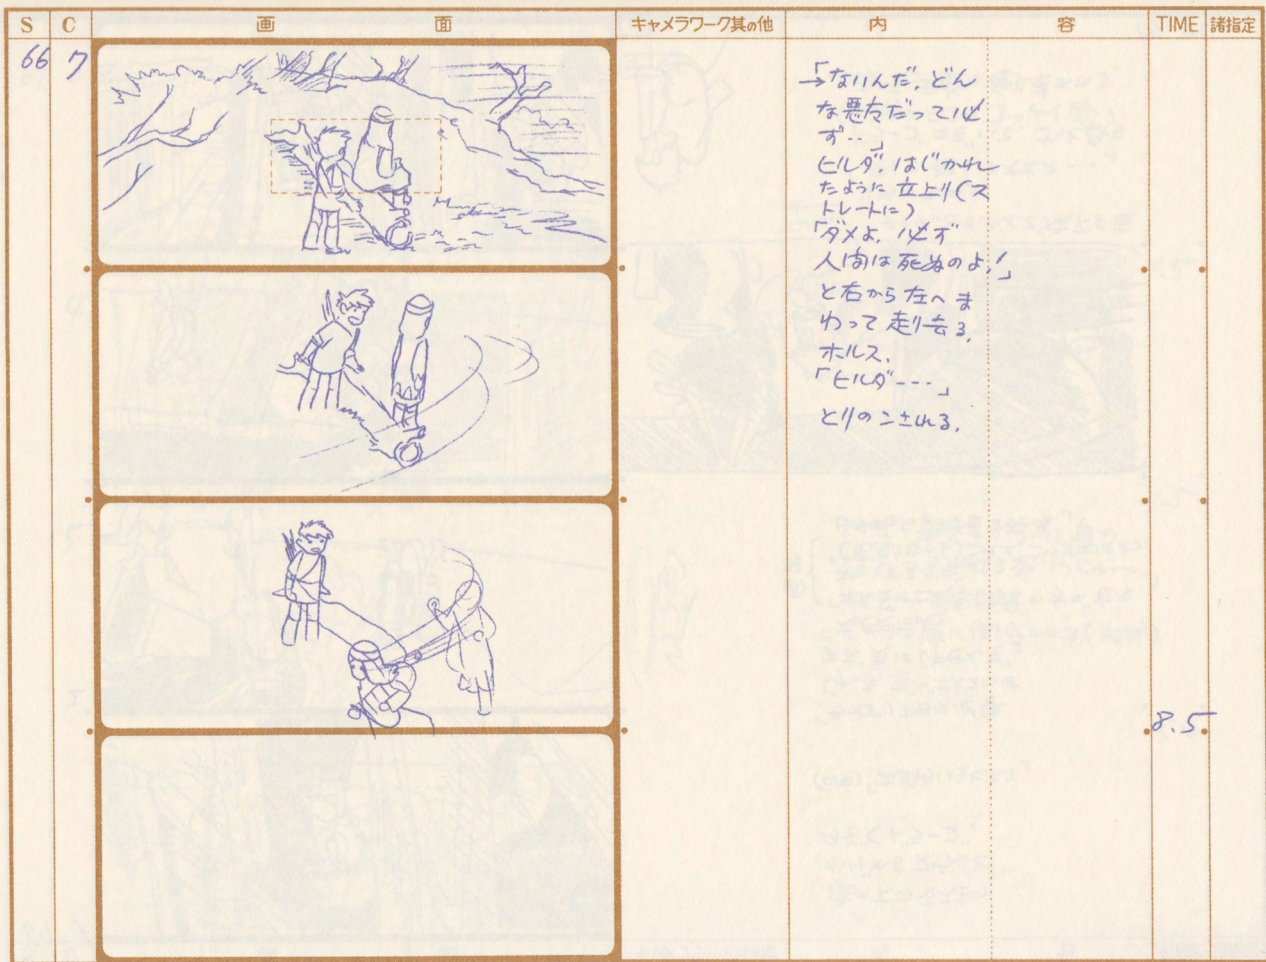 S C 画 面 キャメラワーク其の他 内 容 TIME 諸指定
66 7
→「ないんだ、どん
な悪魔だって必
ず…」
ヒルダはじかれ
たように立上り(ス
トレートに)
「ダメよ、必ず
人間は死ぬのよ!」
と右から左へま
わって走り去る、
ホルス、
「ヒルダ---」
とりのこされる、
8.5